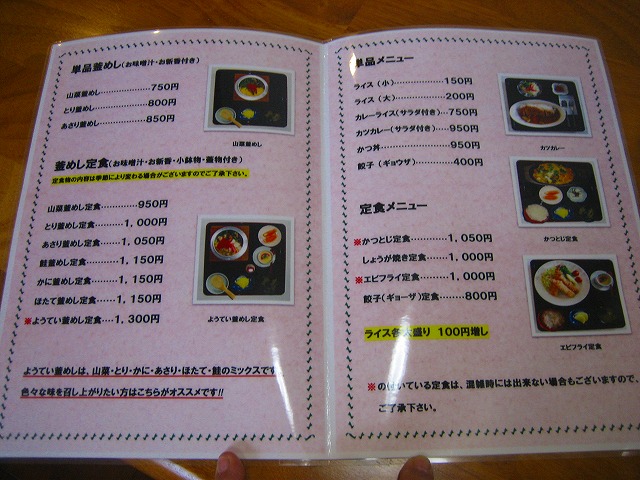 単品釜めし(お味噌汁・お新香付き)
山菜釜めし………………750円
とり釜めし………………800円
あさり釜めし……………850円
山菜釜めし
釜めし定食(お味噌汁・お新香・小鉢物・蓋物付き)
定食物の内容は季節により変わる場合がございますのでご了承下さい。
山菜釜めし定食…………950円
とり釜めし定食………1,000円
あさり釜めし定食……1,050円
鮭釜めし定食…………1,150円
かに釜めし定食………1,150円
ほたて釜めし定食……1,150円
※ようてい釜めし定食…1,300円
ようてい釜めし定食
ようてい釜めしは、山菜・とり・かに・あさり・ほたて・鮭のミックスです。
色々な味を召し上がりたい方はこちらがオススメです!!
単品メニュー
ライス(小)………………150円
ライス(大)………………200円
カレーライス(サラダ付き)…750円
カツカレー(サラダ付き)…950円
かつ丼……………………950円
餃子(ギョウザ)…………400円
カツカレー
定食メニュー
※かつとじ定食…………1,050円
しょうが焼き定食……1,000円
※エビフライ定食………1,000円
餃子(ギョーザ)定食……800円
かつとじ定食
ライス各大盛り 100円増し
エビフライ定食
※のついている定食は、混雑時には出来ない場合もございますので、
ご了承下さい。